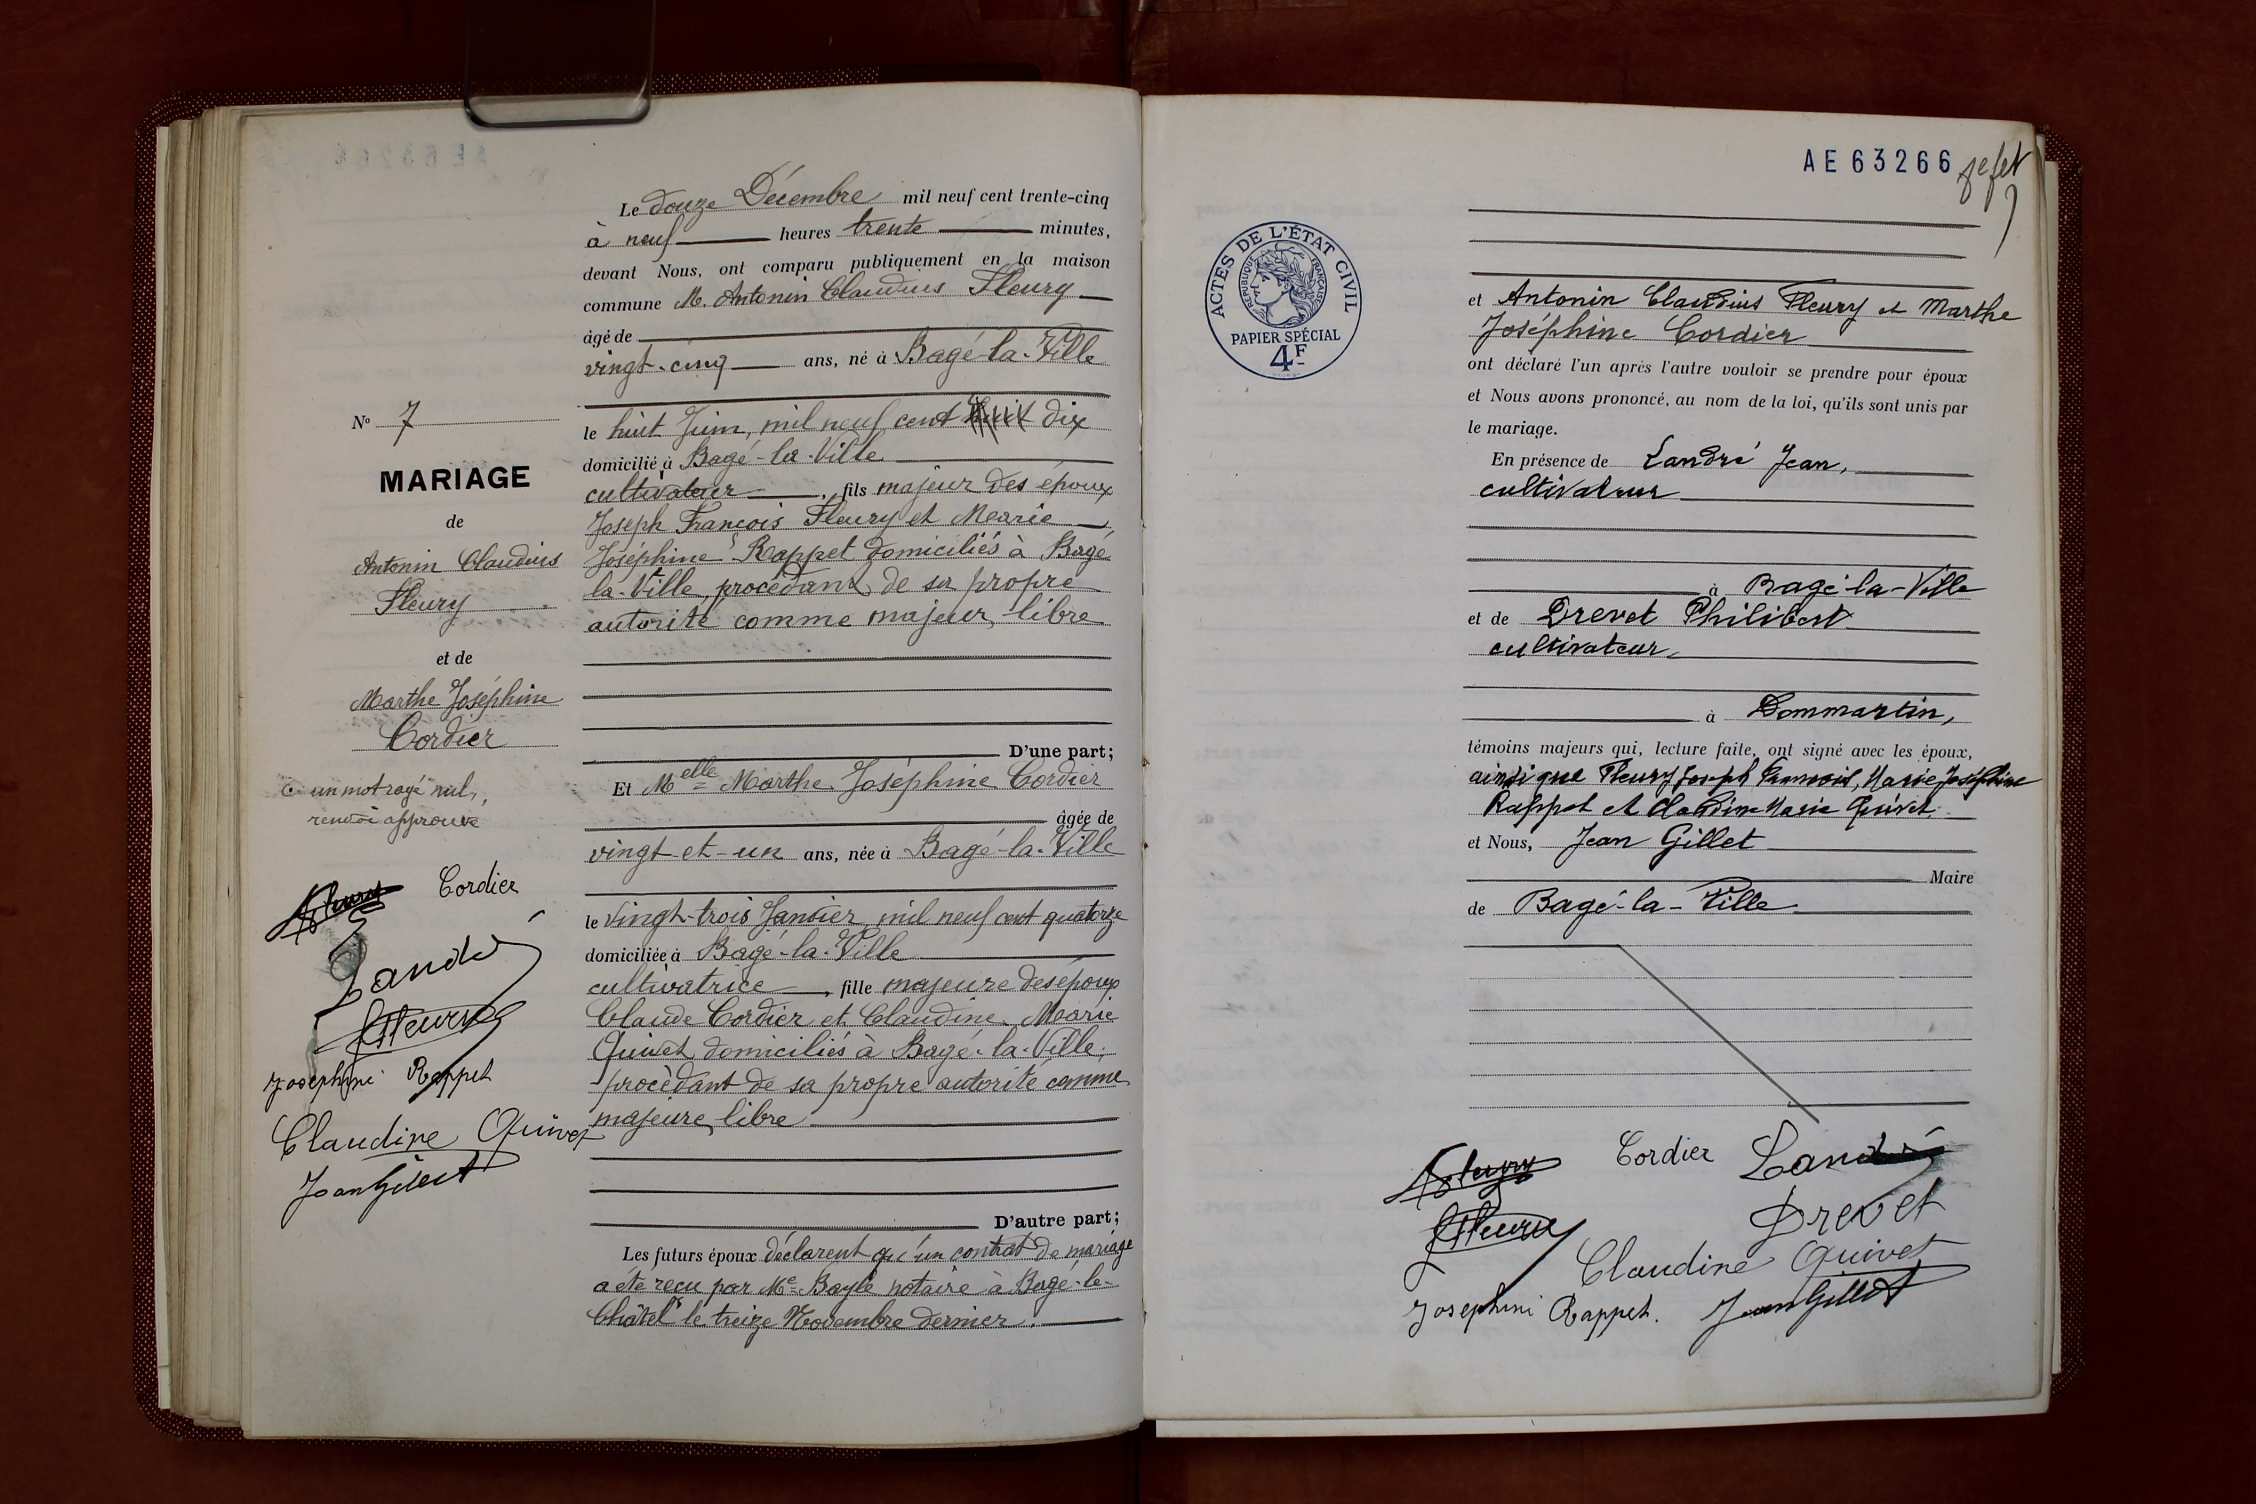 Le douze Décembre mil neuf cent trente-cinq
à neuf heures trente minutes,
devant Nous, ont comparu publiquement en la maison
commune M. Antonin Claudius Fleury
âgé de
vingt-cinq ans, né à Bagé-la-Ville
le huit Juin, mil neuf cent huit dix
domicilié à Bagé-la-Ville
cultivateur, fils majeur des époux
Joseph François Fleury et Marie
Joséphine Rappet domiciliés à Bagé
la-Ville, procédant de sa propre
autorité comme majeur, libre
D'une part;
Et Melle Marthe Joséphine Cordier
âgée de
vingt-et-un ans, née à Bagé-la-Ville
le vingt-trois Janvier mil neuf cent quatorze
domiciliée à Bagé-la-Ville
cultivatrice, fille majeure des époux
Claude Cordier et Claudine Marie
Quivet domiciliés à Bagé-la-Ville,
procédant de sa propre autorité comme
majeure, libre
D'autre part;
Les futurs époux déclarent qu'un contrat de mariage
a été reçu par Me Bayle notaire à Bagé-le-
Châtel le treize Novembre dernier.
No 7
MARIAGE
de
Antonin Claudius
Fleury
et de
Marthe Joséphine
Cordier
un mot rayé nul,
renvoi approuvé
Fleury Cordier
Landré
Fleury
Josephine Rappet
Claudine Quivet
Jean Gillet
AE 63266
ACTES DE L'ÉTAT CIVIL
RÉPUBLIQUE FRANÇAISE
PAPIER SPÉCIAL
4F
et Antonin Claudius Fleury et Marthe
Joséphine Cordier
ont déclaré l'un après l'autre vouloir se prendre pour époux
et Nous avons prononcé, au nom de la loi, qu'ils sont unis par
le mariage.
En présence de Landré Jean,
cultivateur
à Bagé-la-Ville
et de Drevet Philibert
cultivateur
à Dommartin,
témoins majeurs qui, lecture faite, ont signé avec les époux,
ainsi que Fleury Joseph François, Marie Joséphine
Rappet et Claudine Marie Quivet
et Nous, Jean Gillet
Maire
de Bagé-la-Ville
Fleury Cordier Landré
Fleury Drevet
Claudine Quivet
Josephine Rappet. Jean Gillet